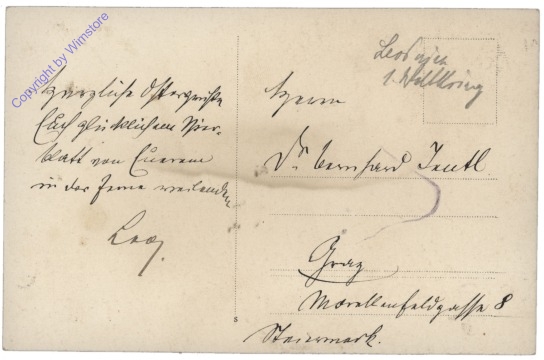 Copyright by Wimstore
Herzliche Ostergrüße
Euch glücklichem Vier-
blatt von Eurem
in der Ferne weilenden
Leo.
1. Weltkrieg
Herrn
Dr. Bernhard
Graz
Morellenfeldgasse 8
Steiermark.
5